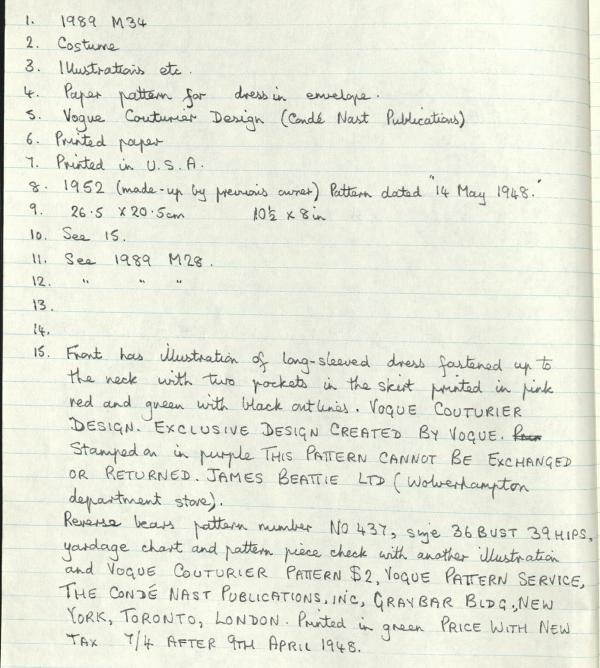 1. 1989 M34
2. Costume
3. Illustrations etc.
4. Paper pattern for dress in envelope.
5. Vogue Couturier Design (Condé Nast Publications)
6. Printed paper
7. Printed in U.S.A.
8. 1952 (made-up by previous owner) Pattern dated "14 May 1948."
9. 26.5 x 20.5cm 10½ x 8in
10. See 15.
11. See 1989 M28.
12. " " "
13.
14.
15. Front has illustration of long-sleeved dress fastened up to
the neck with two pockets in the skirt printed in pink
red and green with black outlines. VOGUE COUTURIER
DESIGN. EXCLUSIVE DESIGN CREATED BY VOGUE.
Stamped on in purple THIS PATTERN CANNOT BE EXCHANGED
OR RETURNED. JAMES BEATTIE LTD (Wolverhampton
department store).
Reverse bears pattern number NO 437, size 36 BUST 39 HIPS,
yardage chart and pattern piece check with another illustration
and VOGUE COUTURIER PATTERN $2, VOGUE PATTERN SERVICE,
THE CONDÉ NAST PUBLICATIONS, INC, GRAYBAR BLDG., NEW
YORK, TORONTO, LONDON. Printed in green PRICE WITH NEW
TAX 7/4 AFTER 9TH APRIL 1948.